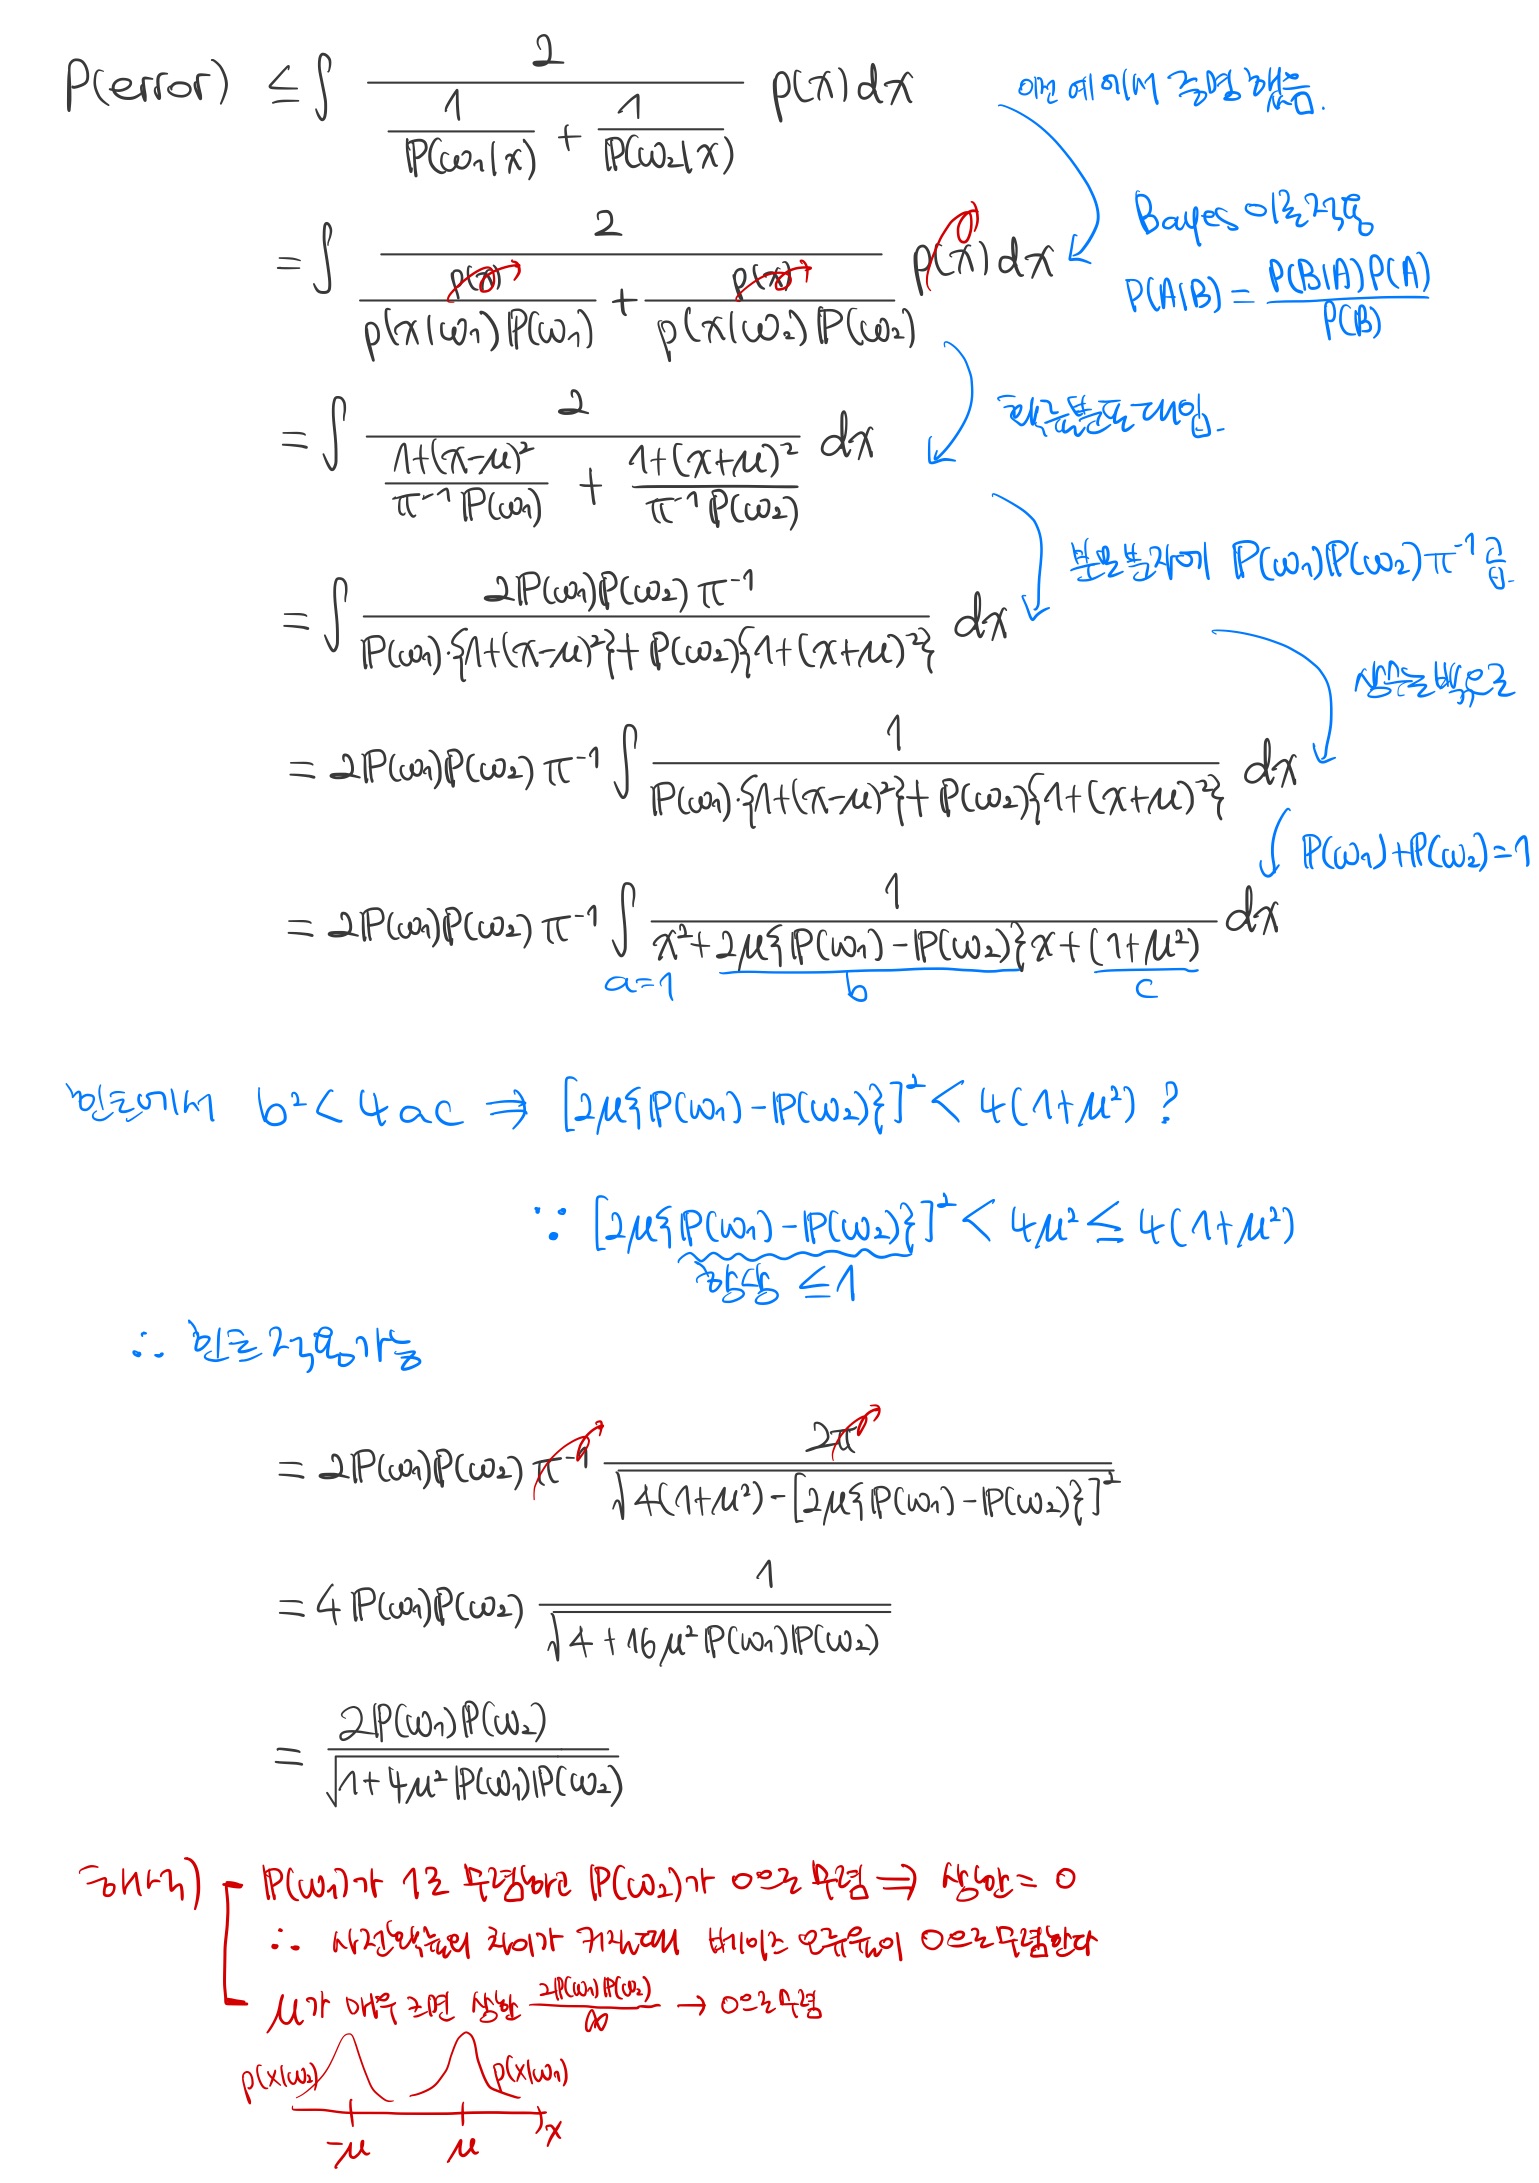 P(error) ≤ ∫ 2 / (1/ℙ(ω₁|x) + 1/ℙ(ω₂|x)) p(x)dx
이전 예에서 증명했음.
= ∫ 2 / (p(x)/(p(x|ω₁)ℙ(ω₁)) + p(x)/(p(x|ω₂)ℙ(ω₂))) p(x)dx
Bayes 이론 적용
P(A|B) = P(B|A)P(A) / P(B)
= ∫ 2 / ((1+(x-μ)²)/(π⁻¹ℙ(ω₁)) + (1+(x+μ)²)/(π⁻¹ℙ(ω₂))) dx
확률분포 대입.
= ∫ 2ℙ(ω₁)ℙ(ω₂)π⁻¹ / (ℙ(ω₁)·{1+(x-μ)²}+ℙ(ω₂){1+(x+μ)²}) dx
분모분자에 ℙ(ω₁)ℙ(ω₂)π⁻¹ 곱.
= 2ℙ(ω₁)ℙ(ω₂)π⁻¹ ∫ 1 / (ℙ(ω₁)·{1+(x-μ)²}+ℙ(ω₂){1+(x+μ)²}) dx
상수는 밖으로
= 2ℙ(ω₁)ℙ(ω₂)π⁻¹ ∫ 1 / (x²+2μ{ℙ(ω₁)-ℙ(ω₂)}x+(1+μ²)) dx
ℙ(ω₁)+ℙ(ω₂)=1
a=1 b c
힌트에서 b²<4ac ⇒ [2μ{ℙ(ω₁)-ℙ(ω₂)}]² < 4(1+μ²) ?
∵ [2μ{ℙ(ω₁)-ℙ(ω₂)}]² < 4μ² ≤ 4(1+μ²)
항상 ≤1
∴ 힌트 적용가능
= 2ℙ(ω₁)ℙ(ω₂)π⁻¹ 2π / √(4(1+μ²)-[2μ{ℙ(ω₁)-ℙ(ω₂)}]²)
= 4ℙ(ω₁)ℙ(ω₂) 1 / √(4+16μ²ℙ(ω₁)ℙ(ω₂))
= 2ℙ(ω₁)ℙ(ω₂) / √(1+4μ²ℙ(ω₁)ℙ(ω₂))
해석) ℙ(ω₁)가 1로 수렴하고 ℙ(ω₂)가 0으로 수렴 ⇒ 상한 = 0
∴ 사전확률의 차이가 커질때 베이즈 오류율이 0으로 수렴한다
μ가 매우 크면 상한 2ℙ(ω₁)ℙ(ω₂) / ∞ → 0으로 수렴
p(x|ω₂) p(x|ω₁)
-μ μ x